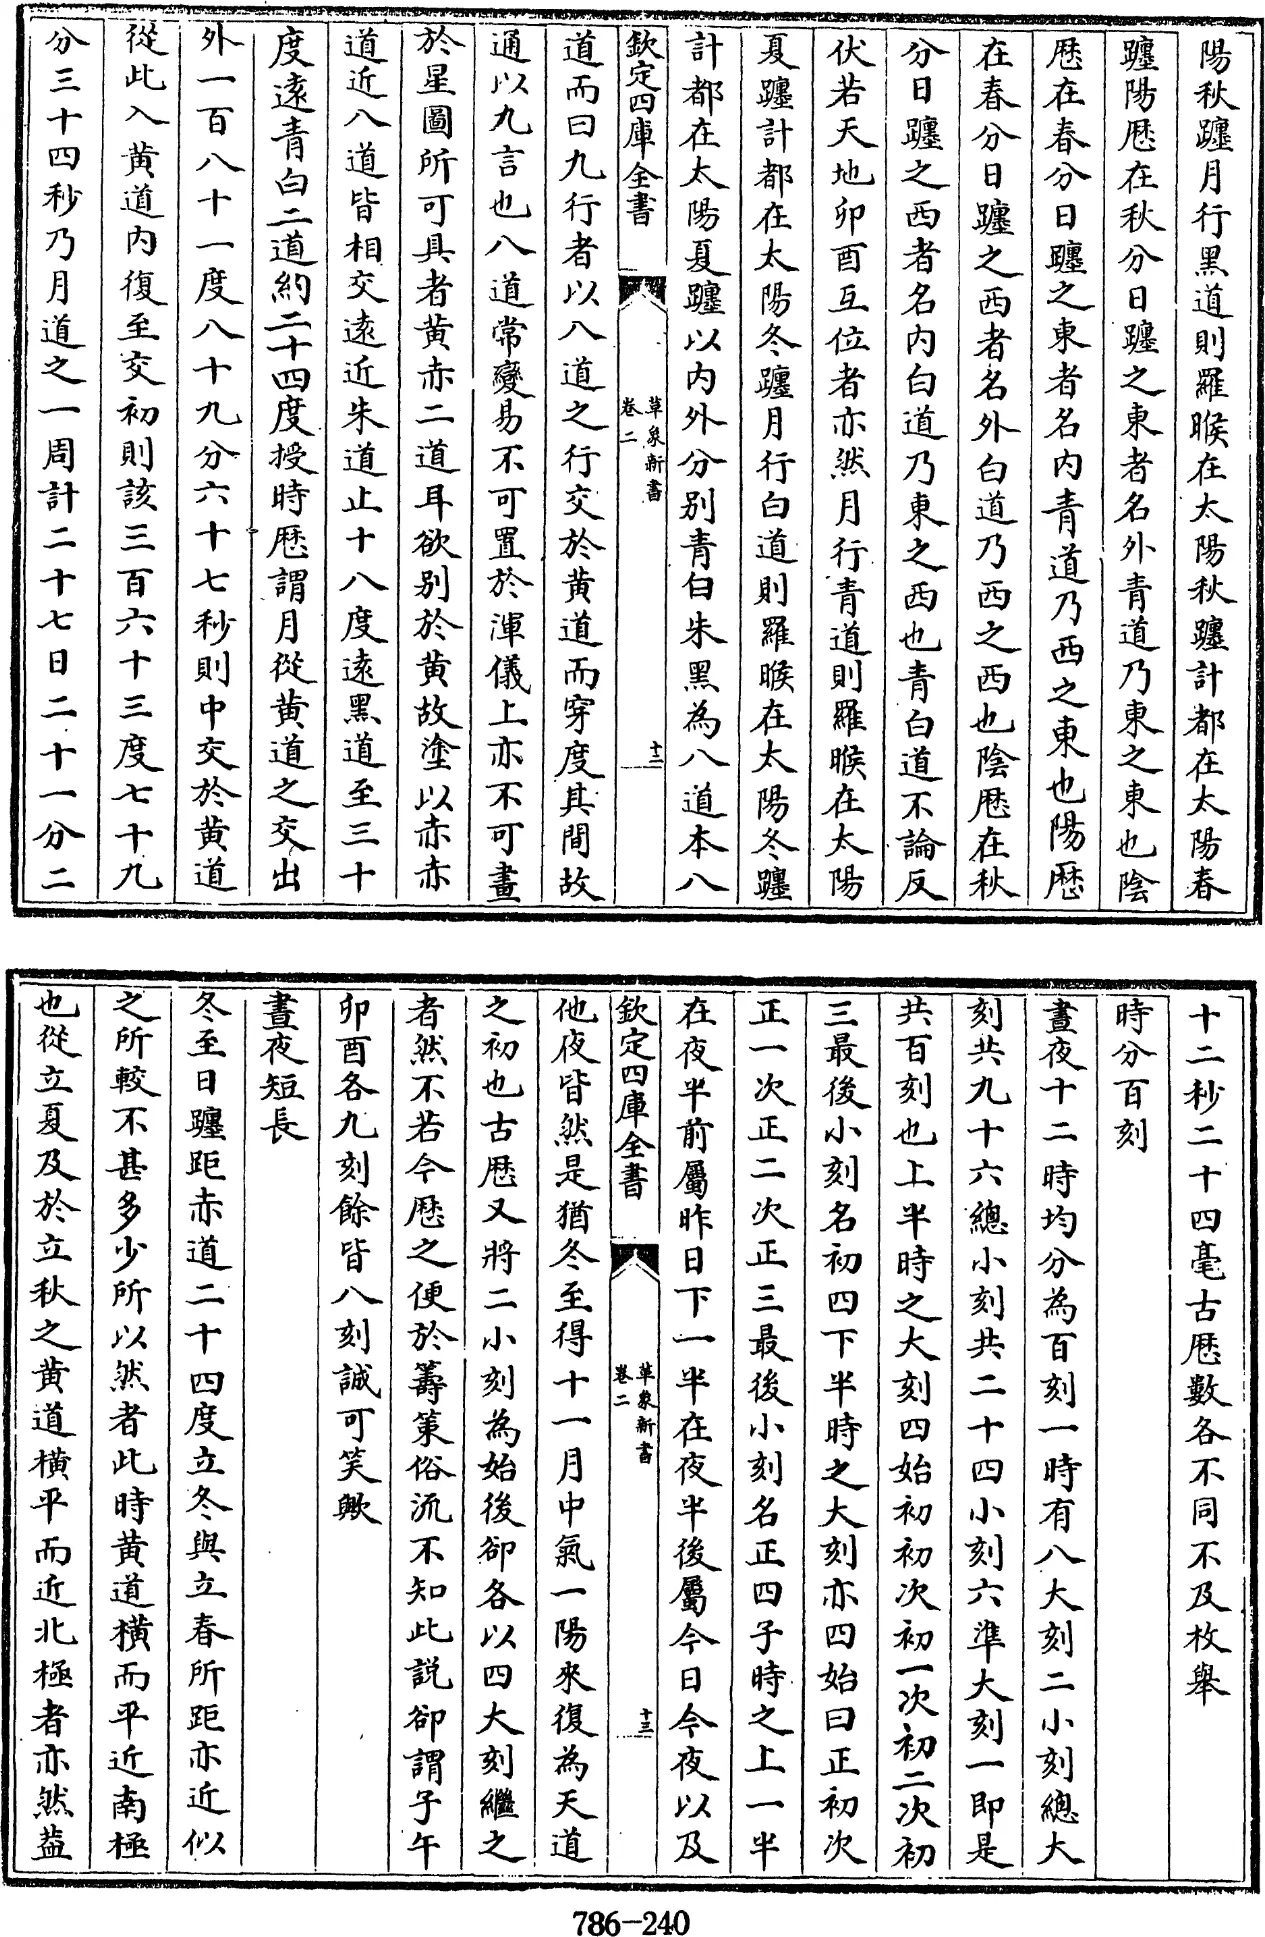 陽秋躔月行黑道則羅睺在太陽秋躔計都在太陽春
躔陽厯在秋分日躔之東者名外青道乃東之東也陰
厯在春分日躔之東者名内青道乃西之東也陽厯
在春分日躔之西者名外白道乃西之西也陰厯在秋
分日躔之西者名内白道乃東之西也青白道不論反
伏若天地卯酉互位者亦然月行青道則羅睺在太陽
夏躔計都在太陽冬躔月行白道則羅睺在太陽冬躔
計都在太陽夏躔以内外分别青白朱黑為八道本八
欽定四庫全書
革象新書
卷二
十二
道而曰九行者以八道之行交於黄道而穿度其間故
通以九言也八道常變易不可置於渾儀上亦不可畫
於星圖所可具者黄赤二道耳欲别於黄故塗以赤赤
道近八道皆相交遠近朱道止十八度遠黑道至三十
度遠青白二道約二十四度授時厯謂月從黄道之交出
外一百八十一度八十九分六十七秒則中交於黄道
從此入黄道内復至交初則該三百六十三度七十九
分三十四秒乃月道之一周計二十七日二十一分二
十二秒二十四毫古厯數各不同不及枚舉
時分百刻
晝夜十二時均分為百刻一時有八大刻二小刻總大
刻共九十六總小刻共二十四小刻六準大刻一即是
共百刻也上半時之大刻四始初初次初一次初二次初
三最後小刻名初四下半時之大刻亦四始曰正初次
正一次正二次正三最後小刻名正四子時之上一半
在夜半前屬昨日下一半在夜半後屬今日今夜以及
欽定四庫全書
革象新書
卷二
十三
他夜皆然是猶冬至得十一月中氣一陽來復為天道
之初也古厯又將二小刻為始後卻各以四大刻繼之
者然不若今厯之便於籌策俗流不知此説卻謂子午
卯酉各九刻餘皆八刻誠可笑歟
晝夜短長
冬至日躔距赤道二十四度立冬與立春所距亦近似
之所較不甚多少所以然者此時黄道横而平近南極
也從立夏及於立秋之黄道横平而近北極者亦然葢
786-240